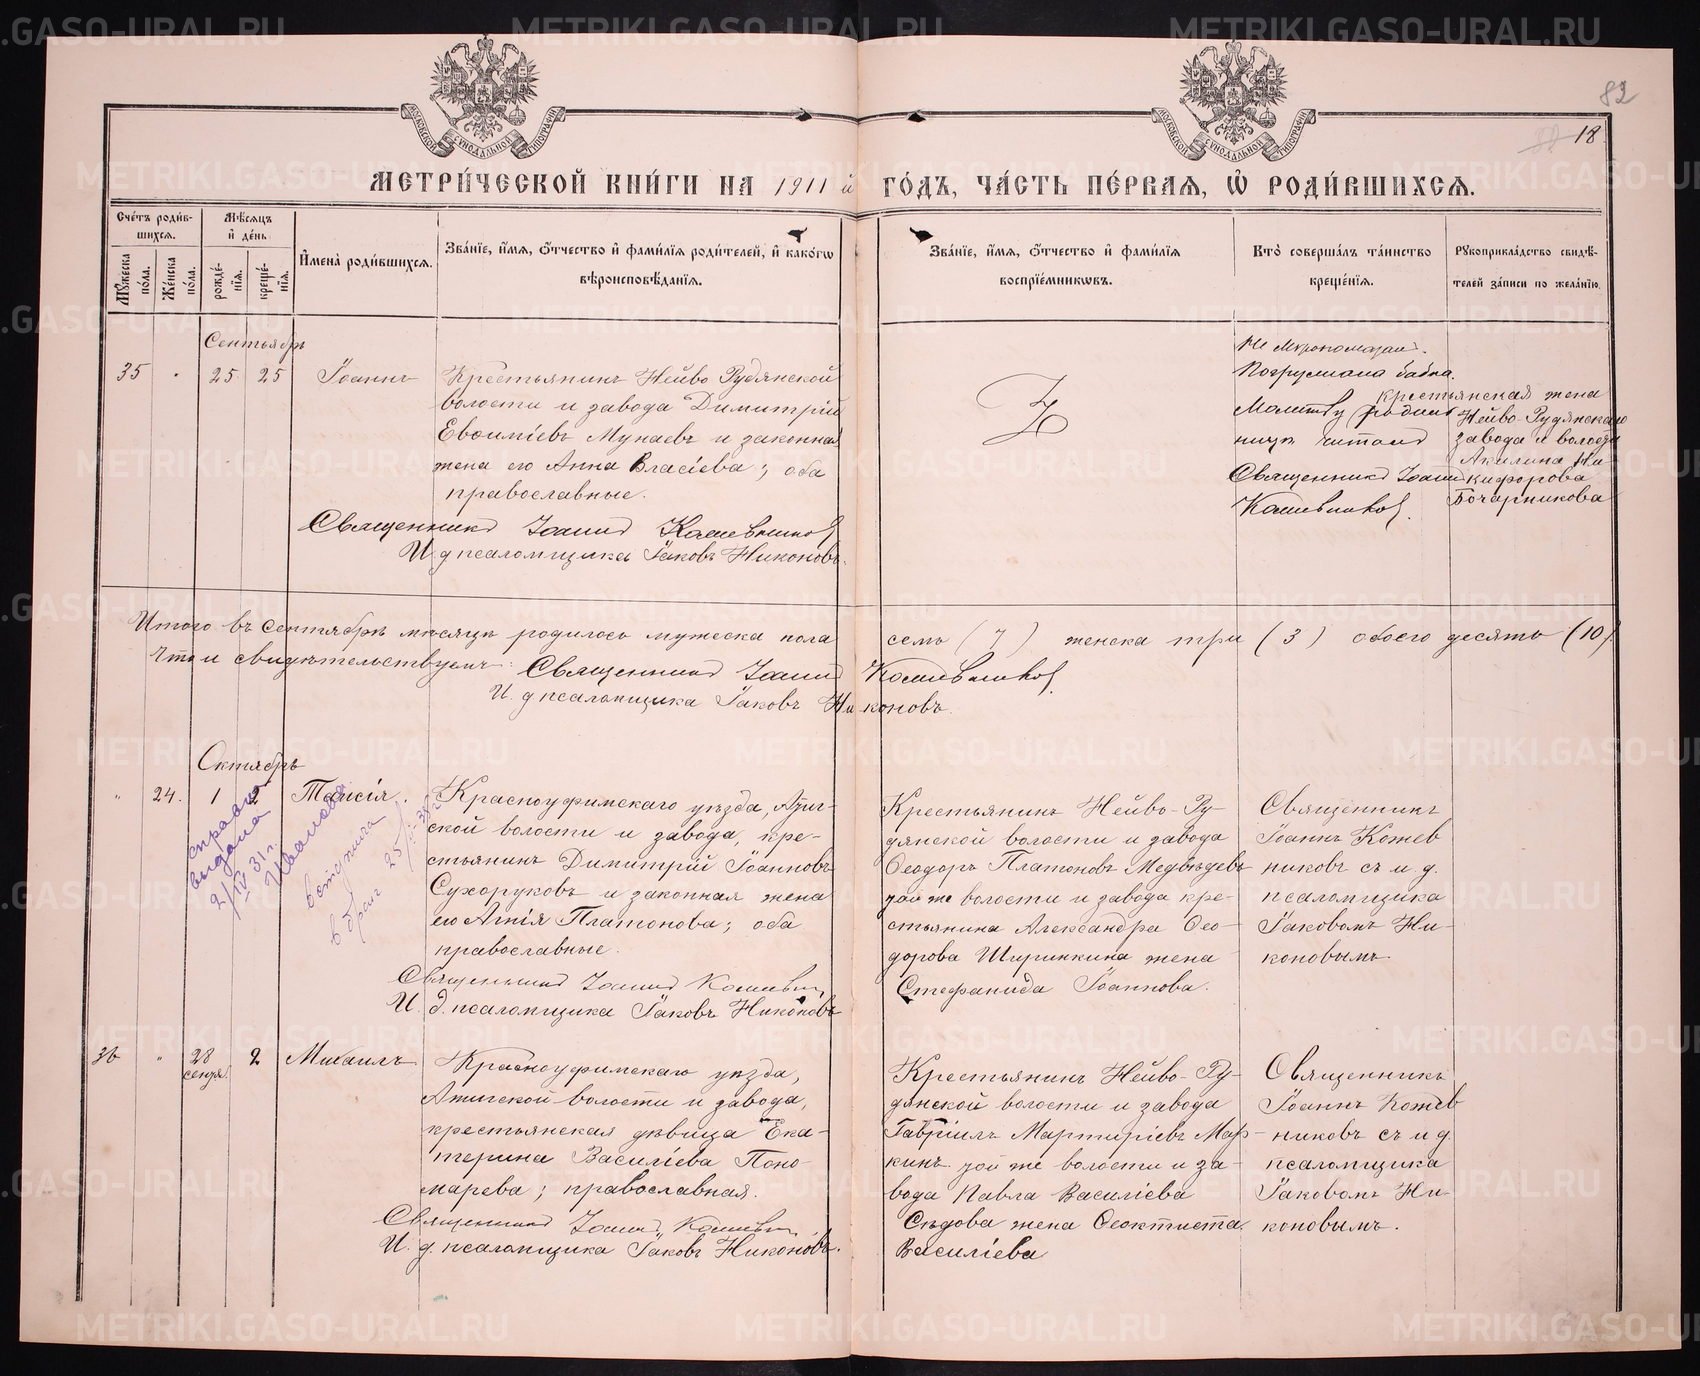 METRIKI.GASO-URAL.RU
82
18
МОСКОВСКОЙ СѴНОДАЛЬНОЙ ТИПОГРАФІИ
МОСКОВСКОЙ СѴНОДАЛЬНОЙ ТИПОГРАФІИ
МЕТРИ́ЧЕСКОЙ КНИ́ГИ НА 1911 й ГО́ДЪ, ЧА́СТЬ ПЕ́РВАЯ, Ѡ҆ РОДИ́ВШИХСЯ.
Сче́тъ роди́в-
шихся.
Мѣ́сяцъ
и҆ де́нь
Му́жеска по́ла.
Же́нска по́ла.
рожде́-
нїя.
креще́-
нїя.
И҆мена̀ роди́вшихся.
Зва́нїе, и҆́мя, ѻ҆́тчество и҆ фами́лїя роди́телей, и҆ како́гѡ
вѣроисповѣ́данїя.
Зва́нїе, и҆́мя, ѻ҆́тчество и҆ фами́лїя
воспрїе́мникѡвъ.
Кто̀ соверша́лъ та́инство
креще́нїя.
Рꙋкоприкла́дство свидѣ́-
телей за́писи по жела́нїю.
Сентябрь
35 " 25 25 Іоаннъ
Крестьянинъ Нейво Рудянской
волости и завода Димитрій
Евѳиміевъ Мунаевъ и законная
жена его Анна Власіева; оба
православные.
Священникъ Іоаннъ Кожевниковъ
И. д. псаломщика Іаковъ Никоновъ.
Не мѵропомазан.
Погружала бабка.
Молитву родил
ницѣ читалъ
Священникъ Іоаннъ
Кожевниковъ.
крестьянская жена
Нейво-Рудянскаго
завода и волости
Акилина Ни-
кифорова
Бочарникова
Итого въ Сентябрѣ мѣсяцѣ родилось мужеска пола семь (7) женска три (3) обоего десять (10)
Что и свидѣтельствуемъ: Священникъ Іоаннъ Кожевниковъ.
И. д. псаломщика Іаковъ Никоновъ.
Октябрь
" 24. 1 2 Таисія.
справка
выдана
2/IV 31 г.
Иванова
вступила
в брак 25
Красноуфимскаго уѣзда, Атиг-
ской волости и завода, кре-
стьянинъ Димитрій Іоанновъ
Сухоруковъ и законная жена
его Агнія Платонова; оба
православные.
Священникъ Іоаннъ Кожевн
И. д. псаломщика Іаковъ Никоновъ
Крестьянинъ Нейво-Ру-
дянской волости и завода
Ѳеодоръ Платоновъ Медвѣдевъ
той же волости и завода кре-
стьянина Александра Ѳео-
дорова Ширинкина жена
Стефанида Іоаннова.
Священникъ
Іоаннъ Кожев
никовъ съ и. д.
псаломщика
Іаковомъ Ни-
коновымъ.
36 " 28 сентя. 2 Михаилъ
Красноуфимскаго уѣзда,
Атигской волости и завода,
крестьянская дѣвица Ека-
терина Василіева Поно-
марева; православная.
Священникъ Іоаннъ Кожевн
И. д. псаломщика Іаковъ Никоновъ.
Крестьянинъ Нейво-Ру-
дянской волости и завода
Гавріилъ Мартиріевъ Мар-
кинъ той же волости и за-
вода Павла Василіева
Сѣдова жена Ѳеоктиста
Василіева
Священникъ
Іоаннъ Кожев
никовъ съ и. д.
псаломщика
Іаковомъ Ни-
коновымъ.